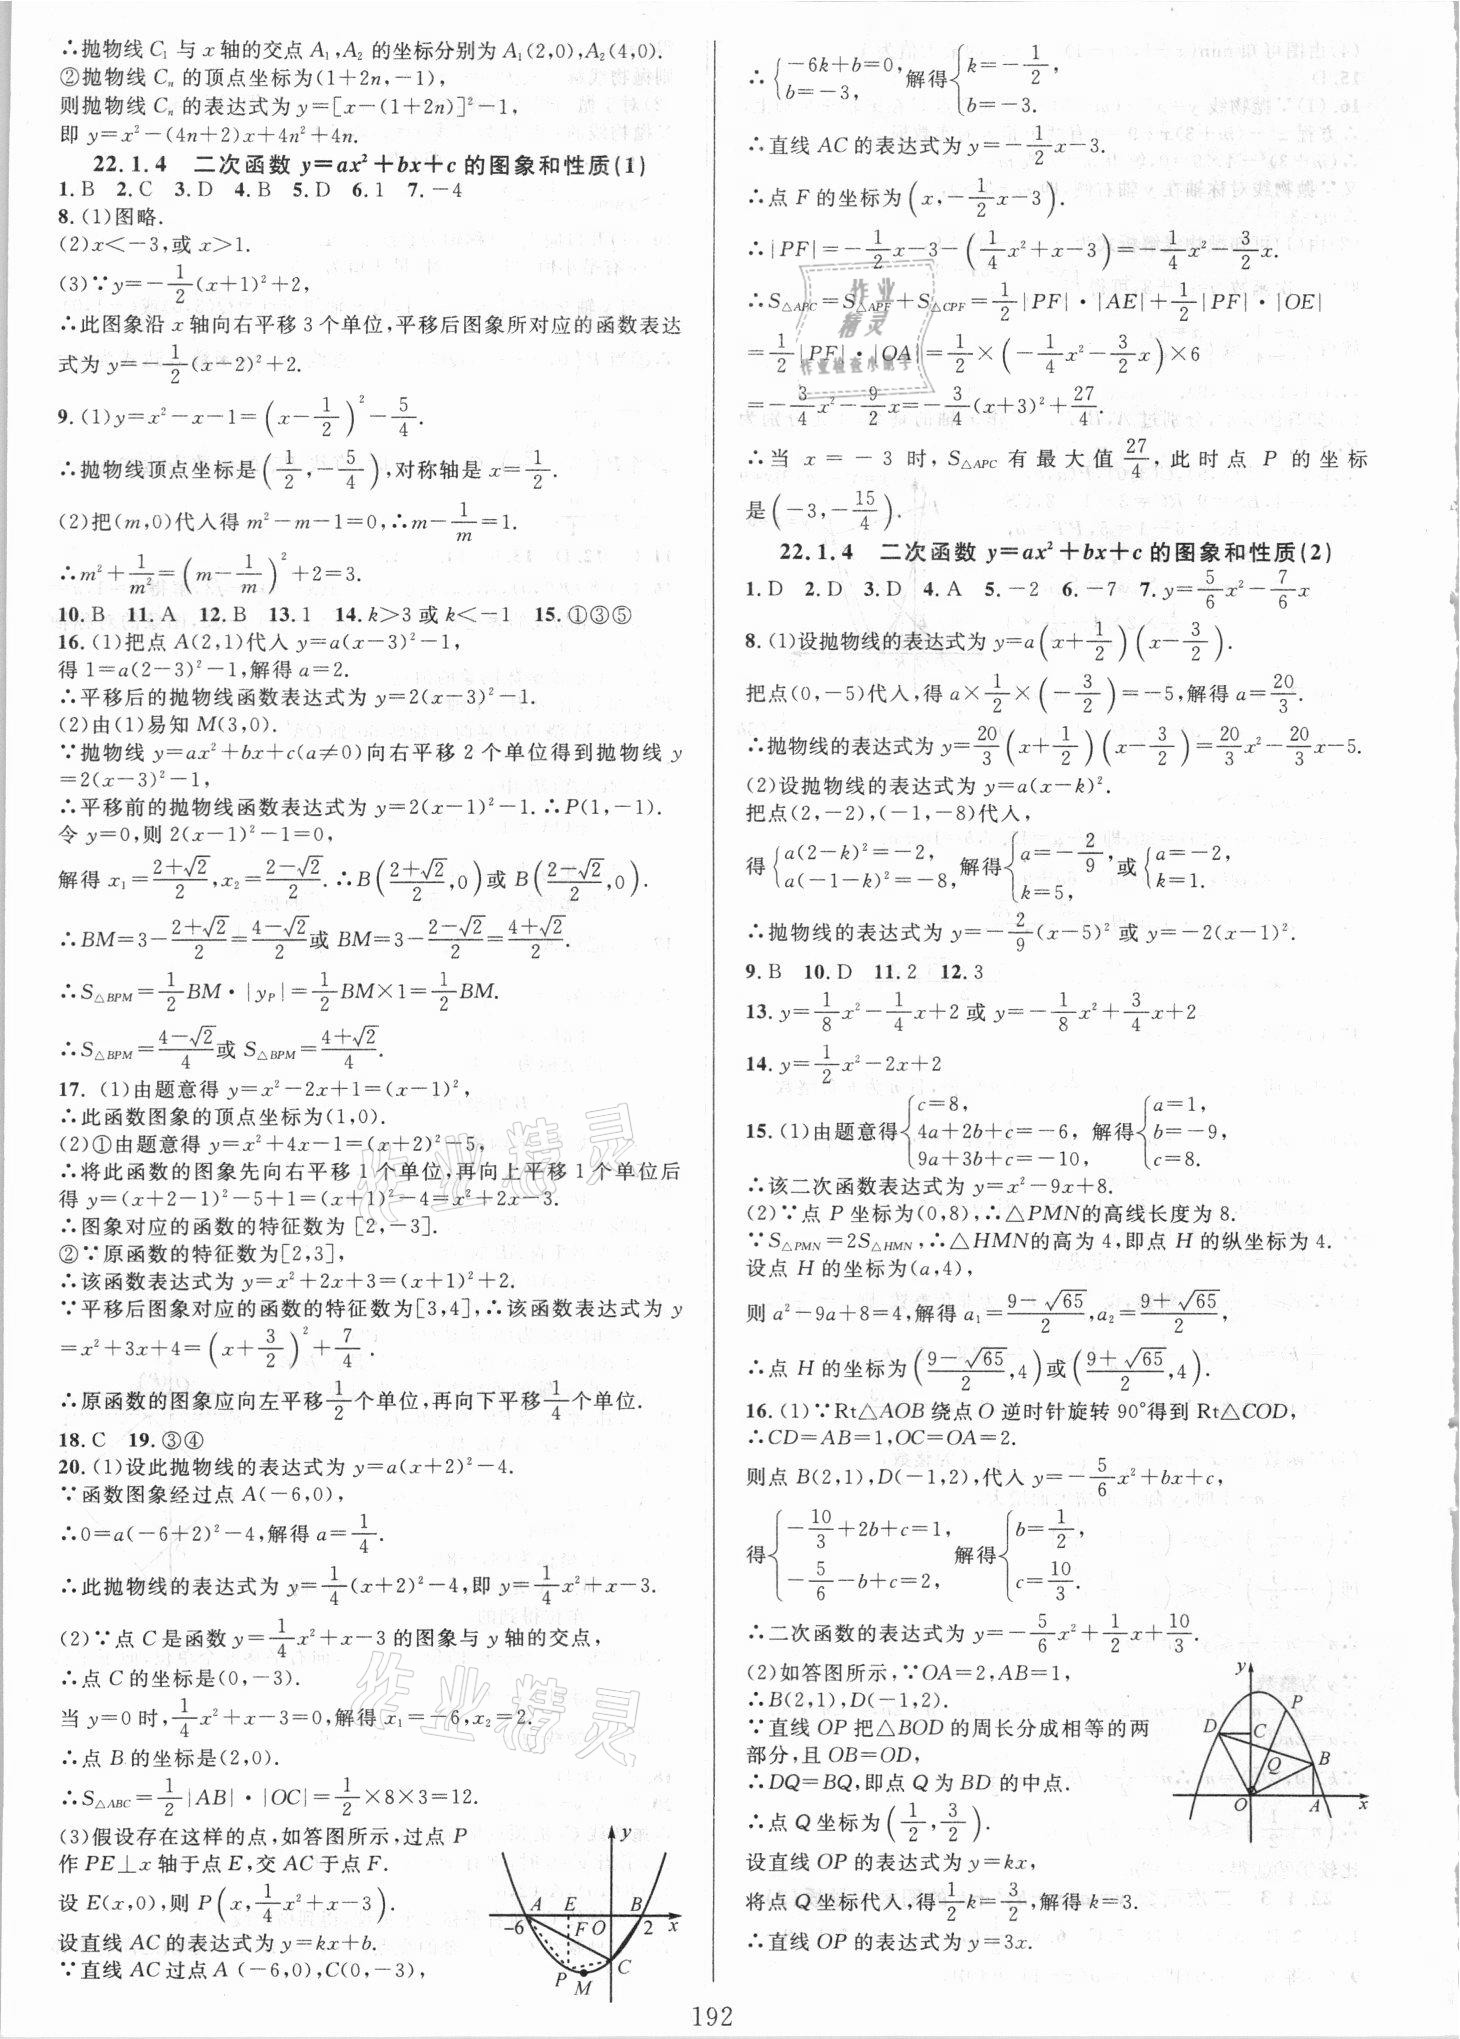 ∴抛物线 C₁ 与 x 轴的交点 A₁,A₂ 的坐标分别为 A₁(2,0),A₂(4,0).
②抛物线 Cₙ 的顶点坐标为(1+2n,-1),
则抛物线 Cₙ 的表达式为 y=[x-(1+2n)]²-1,
即 y=x²-(4n+2)x+4n²+4n.
22.1.4 二次函数 y=ax²+bx+c 的图象和性质(1)
1.B 2.C 3.D 4.B 5.D 6.1 7.-4
8.(1)图略.
(2)x<-3,或 x>1.
(3)∵y=-1/2(x+1)²+2,
∴此图象沿 x 轴向右平移 3 个单位,平移后图象所对应的函数表达
式为 y=-1/2(x-2)²+2.
9.(1)y=x²-x-1=(x-1/2)²-5/4.
∴抛物线顶点坐标是(1/2,-5/4),对称轴是 x=1/2.
(2)把(m,0)代入得 m²-m-1=0,∴m-1/m=1.
∴m²+1/m²=(m-1/m)²+2=3.
10.B 11.A 12.B 13.1 14.k>3 或 k<-1 15.①③⑤
16.(1)把点 A(2,1)代入 y=a(x-3)²-1,
得 1=a(2-3)²-1,解得 a=2.
∴平移后的抛物线函数表达式为 y=2(x-3)²-1.
(2)由(1)易知 M(3,0).
∵抛物线 y=ax²+bx+c(a≠0)向右平移 2 个单位得到抛物线 y
=2(x-3)²-1,
∴平移前的抛物线函数表达式为 y=2(x-1)²-1.∴P(1,-1).
令 y=0,则 2(x-1)²-1=0,
解得 x₁=(2+√2)/2,x₂=(2-√2)/2.∴B((2+√2)/2,0)或 B((2-√2)/2,0).
∴BM=3-(2+√2)/2=(4-√2)/2或 BM=3-(2-√2)/2=(4+√2)/2.
∴S△BPM=1/2BM·|yP|=1/2BM×1=1/2BM.
∴S△BPM=(4-√2)/4或 S△BPM=(4+√2)/4.
17.(1)由题意得 y=x²-2x+1=(x-1)²,
∴此函数图象的顶点坐标为(1,0).
(2)①由题意得 y=x²+4x-1=(x+2)²-5,
∴将此函数的图象先向右平移 1 个单位,再向上平移 1 个单位后
得 y=(x+2-1)²-5+1=(x+1)²-4=x²+2x-3.
∴图象对应的函数的特征数为[2,-3].
②∵原函数的特征数为[2,3],
∴该函数表达式为 y=x²+2x+3=(x+1)²+2.
∵平移后图象对应的函数的特征数为[3,4],∴该函数表达式为 y
=x²+3x+4=(x+3/2)²+7/4.
∴原函数的图象应向左平移1/2个单位,再向下平移1/4个单位.
18.C 19.③④
20.(1)设此抛物线的表达式为 y=a(x+2)²-4.
∵函数图象经过点 A(-6,0),
∴0=a(-6+2)²-4,解得 a=1/4.
∴此抛物线的表达式为 y=1/4(x+2)²-4,即 y=1/4x²+x-3.
(2)∵点 C 是函数 y=1/4x²+x-3 的图象与 y 轴的交点,
∴点 C 的坐标是(0,-3).
当 y=0 时,1/4x²+x-3=0,解得 x₁=-6,x₂=2.
∴点 B 的坐标是(2,0).
∴S△ABC=1/2|AB|·|OC|=1/2×8×3=12.
(3)假设存在这样的点,如答图所示,过点 P
作 PE⊥x 轴于点 E,交 AC 于点 F.
设 E(x,0),则 P(x,1/4x²+x-3).
设直线 AC 的表达式为 y=kx+b.
∵直线 AC 过点 A (-6,0),C(0,-3),
y
A E B
-6 F O 2 x
P C
M
∴{-6k+b=0, b=-3, 解得{k=-1/2, b=-3.
∴直线 AC 的表达式为 y=-1/2x-3.
∴点 F 的坐标为(x,-1/2x-3).
∴|PF|=-1/2x-3-(1/4x²+x-3)=-1/4x²-3/2x.
∴S△APC=S△APF+S△CPF=1/2|PF|·|AE|+1/2|PF|·|OE|
=1/2|PF|·|OA|=1/2×(-1/4x²-3/2x)×6
=-3/4x²-9/2x=-3/4(x+3)²+27/4.
∴当 x=-3 时,S△APC 有最大值27/4,此时点 P 的坐标
是(-3,-15/4).
22.1.4 二次函数 y=ax²+bx+c 的图象和性质(2)
1.D 2.D 3.D 4.A 5.-2 6.-7 7.y=5/6x²-7/6x
8.(1)设抛物线的表达式为 y=a(x+1/2)(x-3/2).
把点(0,-5)代入,得 a×1/2×(-3/2)=-5,解得 a=20/3.
∴抛物线的表达式为 y=20/3(x+1/2)(x-3/2)=20/3x²-20/3x-5.
(2)设抛物线的表达式为 y=a(x-k)².
把点(2,-2),(-1,-8)代入,
得{a(2-k)²=-2, a(-1-k)²=-8, 解得{a=-2/9, k=5, 或{a=-2, k=1.
∴抛物线的表达式为 y=-2/9(x-5)² 或 y=-2(x-1)².
9.B 10.D 11.2 12.3
13.y=1/8x²-1/4x+2 或 y=-1/8x²+3/4x+2
14.y=1/2x²-2x+2
15.(1)由题意得{c=8, 4a+2b+c=-6, 9a+3b+c=-10, 解得{a=1, b=-9, c=8.
∴该二次函数表达式为 y=x²-9x+8.
(2)∵点 P 坐标为(0,8),∴△PMN的高线长度为 8.
∵S△PMN=2S△HMN,∴△HMN的高为 4,即点 H 的纵坐标为 4.
设点 H 的坐标为(a,4),
则 a²-9a+8=4,解得 a₁=(9-√65)/2,a₂=(9+√65)/2,
∴点 H 的坐标为((9-√65)/2,4)或((9+√65)/2,4).
16.(1)∵Rt△AOB 绕点 O 逆时针旋转 90°得到 Rt△COD,
∴CD=AB=1,OC=OA=2.
则点 B(2,1),D(-1,2),代入 y=-5/6x²+bx+c,
得{-10/3+2b+c=1, -5/6-b+c=2, 解得{b=1/2, c=10/3.
∴二次函数的表达式为 y=-5/6x²+1/2x+10/3.
(2)如答图所示,∵OA=2,AB=1,
∴B(2,1),D(-1,2).
∵直线 OP 把△BOD 的周长分成相等的两
部分,且 OB=OD,
∴DQ=BQ,即点 Q 为 BD 的中点.
∴点 Q 坐标为(1/2,3/2).
设直线 OP 的表达式为 y=kx,
将点 Q 坐标代入,得1/2k=3/2,解得 k=3.
∴直线 OP 的表达式为 y=3x.
y
P
D C
B
Q
O A x
作业
精灵
作业精灵
作业精灵
192